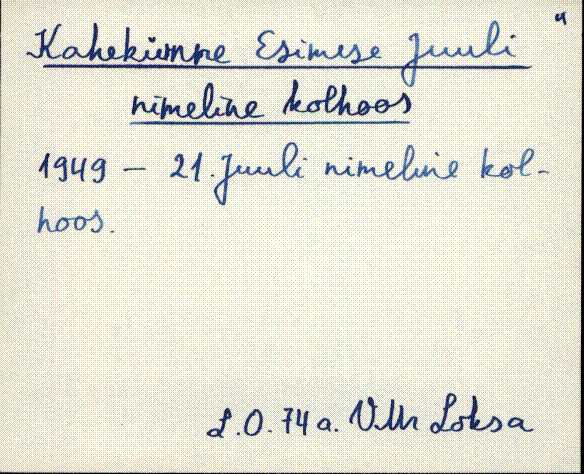 4
Kahekümne Esimese Juuli
nimeline kolhoos
1949 – 21. Juuli nimeline kol-
hoos.
L.O. 74 a. Loksa